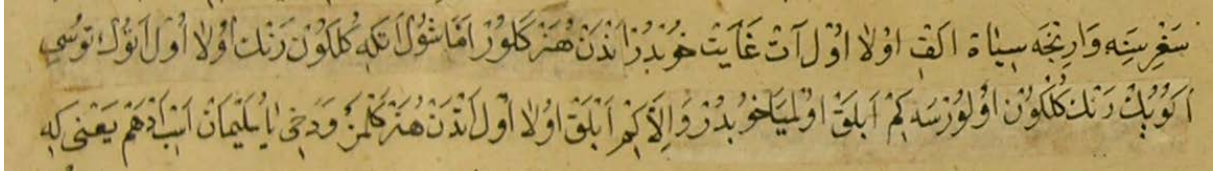 سَغْرِسِنَه وَارِنْجَه سِيَاهْ اَكَقْ اوُلَا اوُلْ آتْ غَايَتْ خُوبْدُرْ اَنْدَنْ هُنَرْ كَلُورْ اَمَّا شُولْ آتْكِه كُلْكُونْ رَنْكْ اوُلَا اوُلْ آتُوكْ تُوسِي
اَكَرْ بُوكْ رَنْكْ كُلْكُونْ اوُلُورْسَه كِمْ اَبْلَقْ اوُلْمَيَا خُوبْدُرْ وَاِلَّا كِمْ اَبْلَقْ اوُلَا اوُلْ آتْدَنْ هُنَرْ كَلْمَزْ وَدَخِي يَا سُلَيْمَانْ اَسْبِ اَدْهَمْ يَعْنِي كِه